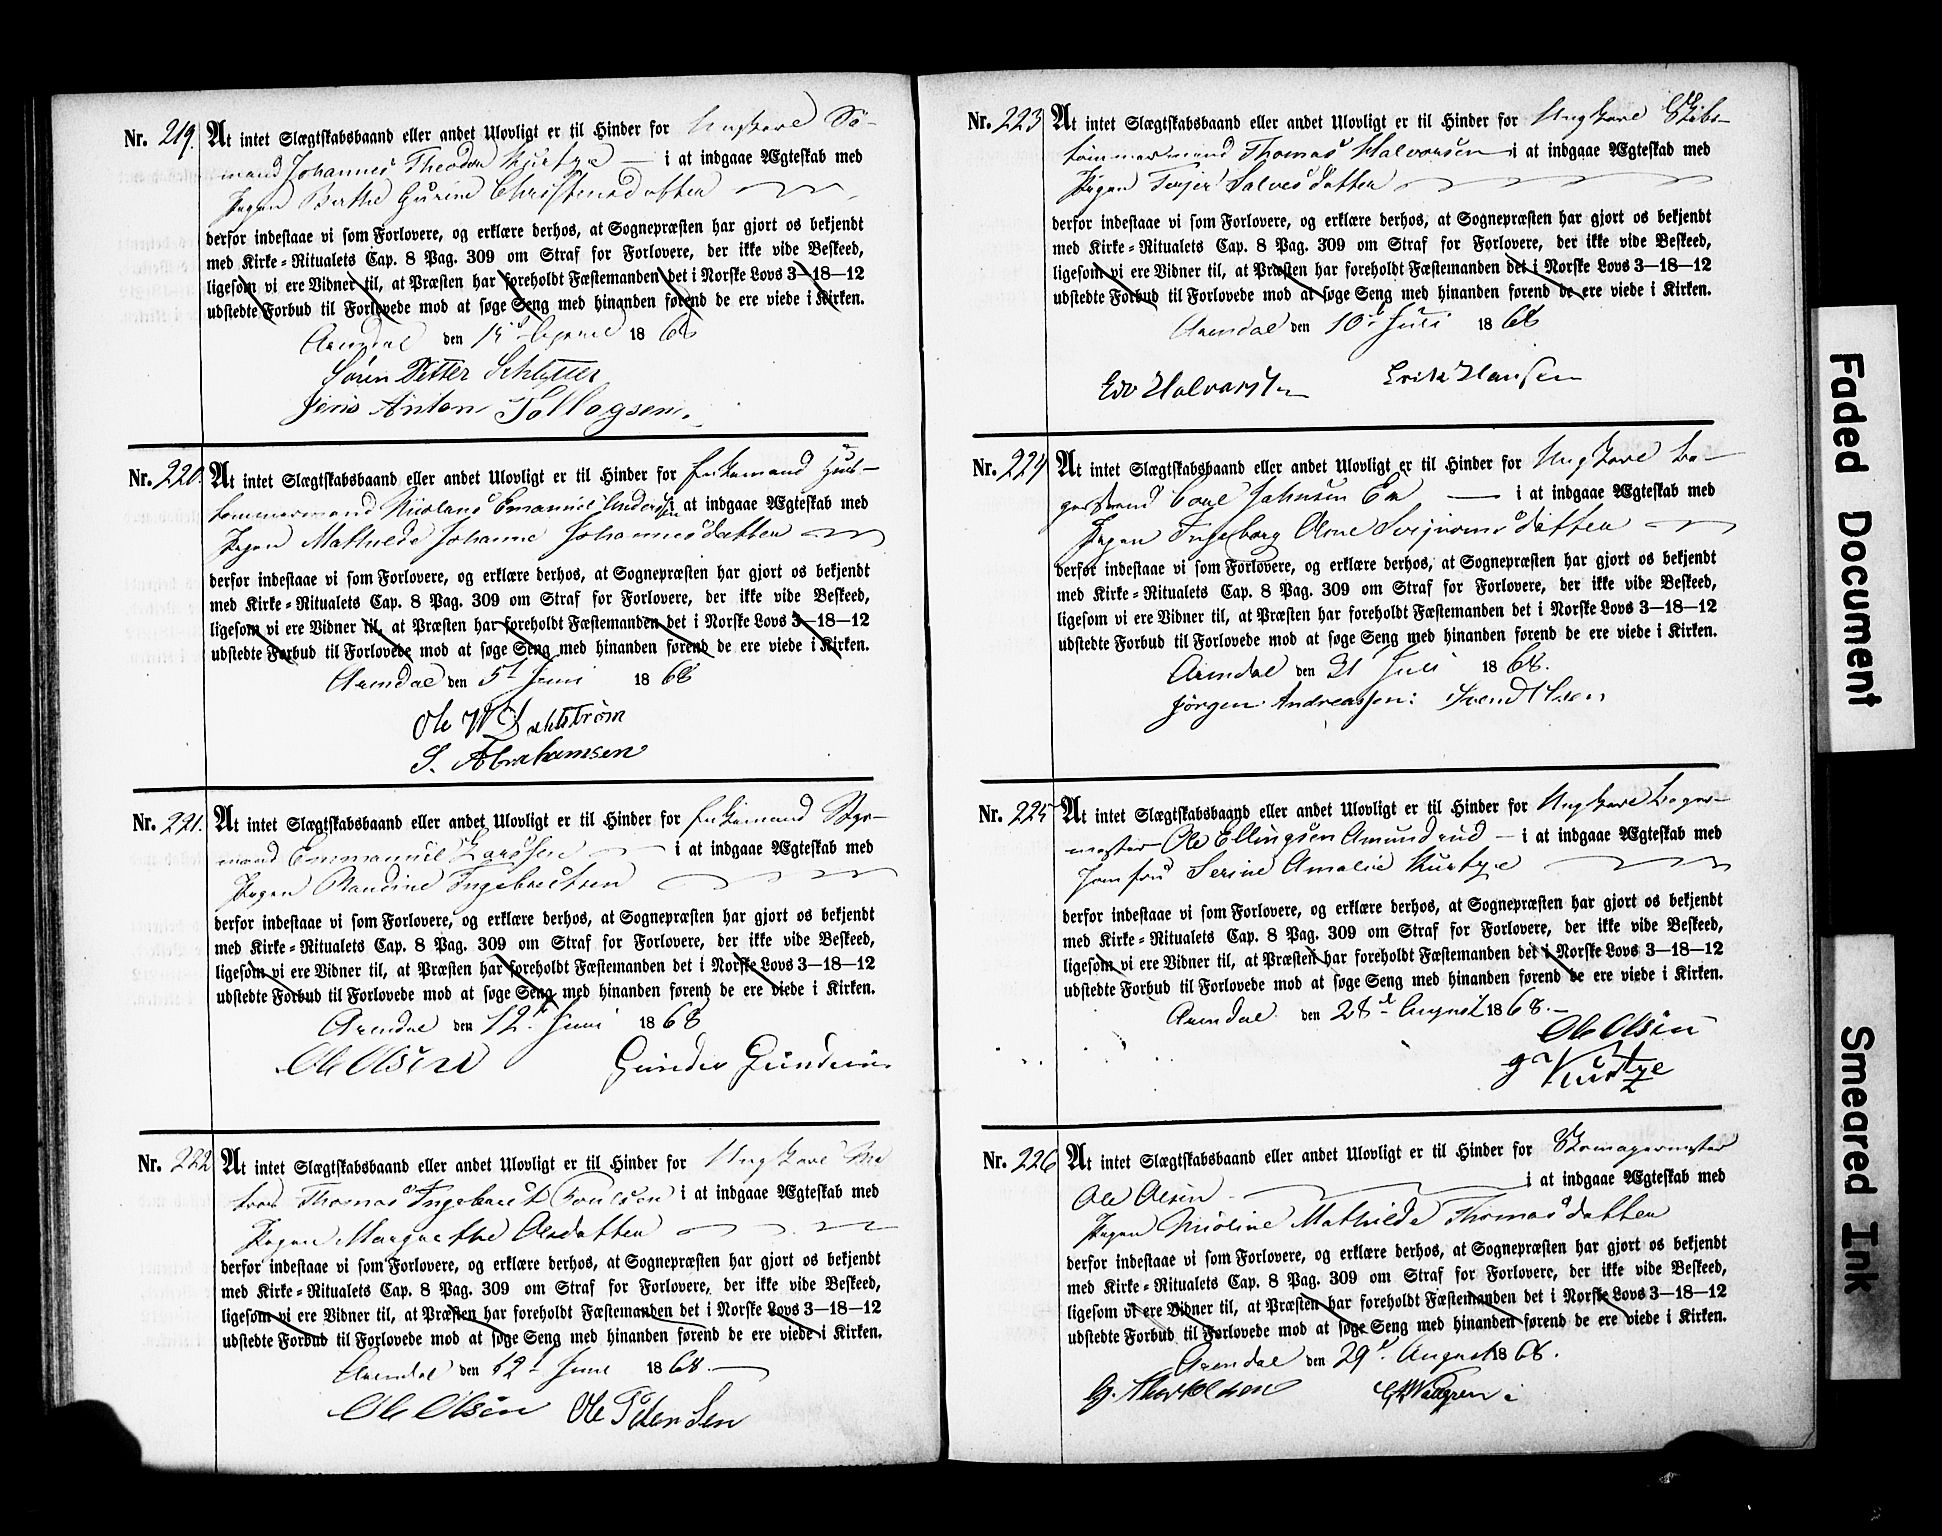 Nr. 219. At intet Slægtskabsbaand eller andet Ulovligt er til Hinder for Ungkarl Sö-
mand Johannes Theodor i at indgaae Ægteskab med
Pigen Berthe Gurine Christensdatter
derfor indestaae vi som Forlovere, og erklære derhos, at Sognepræsten har gjort os bekjendt
med Kirke-Ritualets Cap. 8 Pag. 309 om Straf for Forlovere, der ikke vide Beskeed,
ligesom vi ere Vidner til, at Præsten har foreholdt Fæstemanden det i Norske Lovs 3—18—12
udstedte Forbud til Forlovede mod at søge Seng med hinanden førend de ere viede i Kirken.
Arendal den 1868
Søren Petter Schlytter
Jens Anton Tollagsen.
Nr. 220. At intet Slægtskabsbaand eller andet Ulovligt er til Hinder for Enkemand Huus-
tømmermand Nicolaus Emanuel Andersen i at indgaae Ægteskab med
Pigen Mathilde Johanne Johannesdatter
derfor indestaae vi som Forlovere, og erklære derhos, at Sognepræsten har gjort os bekjendt
med Kirke-Ritualets Cap. 8 Pag. 309 om Straf for Forlovere, der ikke vide Beskeed,
ligesom vi ere Vidner til, at Præsten har foreholdt Fæstemanden det i Norske Lovs 3—18—12
udstedte Forbud til Forlovede mod at søge Seng med hinanden førend de ere viede i Kirken.
Arendal den 5t Juni 1868
Ole W
S. Abrahamsen
Nr. 221. At intet Slægtskabsbaand eller andet Ulovligt er til Hinder for Enkemand Styr-
mand Emmanuel Larssen i at indgaae Ægteskab med
Pigen Ingebretsen
derfor indestaae vi som Forlovere, og erklære derhos, at Sognepræsten har gjort os bekjendt
med Kirke-Ritualets Cap. 8 Pag. 309 om Straf for Forlovere, der ikke vide Beskeed,
ligesom vi ere Vidner til, at Præsten har foreholdt Fæstemanden det i Norske Lovs 3—18—12
udstedte Forbud til Forlovede mod at søge Seng med hinanden førend de ere viede i Kirken.
Arendal den 12t Juni 1868
Ole Olsen Gunder Gundersen
Nr. 222 At intet Slægtskabsbaand eller andet Ulovligt er til Hinder for Ungkarl Ma
tros Thomas Ingebret i at indgaae Ægteskab med
Pigen Margrethe Olsdatter
derfor indestaae vi som Forlovere, og erklære derhos, at Sognepræsten har gjort os bekjendt
med Kirke-Ritualets Cap. 8 Pag. 309 om Straf for Forlovere, der ikke vide Beskeed,
ligesom vi ere Vidner til, at Præsten har foreholdt Fæstemanden det i Norske Lovs 3—18—12
udstedte Forbud til Forlovede mod at søge Seng med hinanden førend de ere viede i Kirken.
Arendal den 12t Juni 1868.
Ole Olsen Ole Petersen
Nr. 223 At intet Slægtskabsbaand eller andet Ulovligt er til Hinder for Ungkarl Skibs-
tømmermand Thomas Halvorsen i at indgaae Ægteskab med
Pigen Terjer Salvesdatter
derfor indestaae vi som Forlovere, og erklære derhos, at Sognepræsten har gjort os bekjendt
med Kirke-Ritualets Cap. 8 Pag. 309 om Straf for Forlovere, der ikke vide Beskeed,
ligesom vi ere Vidner til, at Præsten har foreholdt Fæstemanden det i Norske Lovs 3—18—12
udstedte Forbud til Forlovede mod at søge Seng med hinanden førend de ere viede i Kirken.
Arendal den 10t Juli 1868
Halvorsen Erik Hansen
Nr. 224 At intet Slægtskabsbaand eller andet Ulovligt er til Hinder for Ungkarl Ba-
gersvend Carl Johnsen i at indgaae Ægteskab med
Pigen Ingeborg
derfor indestaae vi som Forlovere, og erklære derhos, at Sognepræsten har gjort os bekjendt
med Kirke-Ritualets Cap. 8 Pag. 309 om Straf for Forlovere, der ikke vide Beskeed,
ligesom vi ere Vidner til, at Præsten har foreholdt Fæstemanden det i Norske Lovs 3—18—12
udstedte Forbud til Forlovede mod at søge Seng med hinanden førend de ere viede i Kirken.
Arendal den 31 Juli 1868.
Jørgen Andreassen: Svend Olsen
Nr. 225 At intet Slægtskabsbaand eller andet Ulovligt er til Hinder for Ungkarl Bager-
mester Ole Ellingsen Amundrud i at indgaae Ægteskab med
Jomfru Serine Amalie Kurtze
derfor indestaae vi som Forlovere, og erklære derhos, at Sognepræsten har gjort os bekjendt
med Kirke-Ritualets Cap. 8 Pag. 309 om Straf for Forlovere, der ikke vide Beskeed,
ligesom vi ere Vidner til, at Præsten har foreholdt Fæstemanden det i Norske Lovs 3—18—12
udstedte Forbud til Forlovede mod at søge Seng med hinanden førend de ere viede i Kirken.
Arendal den 28de August 1868.
Ole Olsen
Nr. 226 At intet Slægtskabsbaand eller andet Ulovligt er til Hinder for Skomagermester
Ole Olsen i at indgaae Ægteskab med
Pigen Nicoline Mathilde Thomasdatter
derfor indestaae vi som Forlovere, og erklære derhos, at Sognepræsten har gjort os bekjendt
med Kirke-Ritualets Cap. 8 Pag. 309 om Straf for Forlovere, der ikke vide Beskeed,
ligesom vi ere Vidner til, at Præsten har foreholdt Fæstemanden det i Norske Lovs 3—18—12
udstedte Forbud til Forlovede mod at søge Seng med hinanden førend de ere viede i Kirken.
Arendal den 29t August 1868.
Faded Document
Smeared Ink